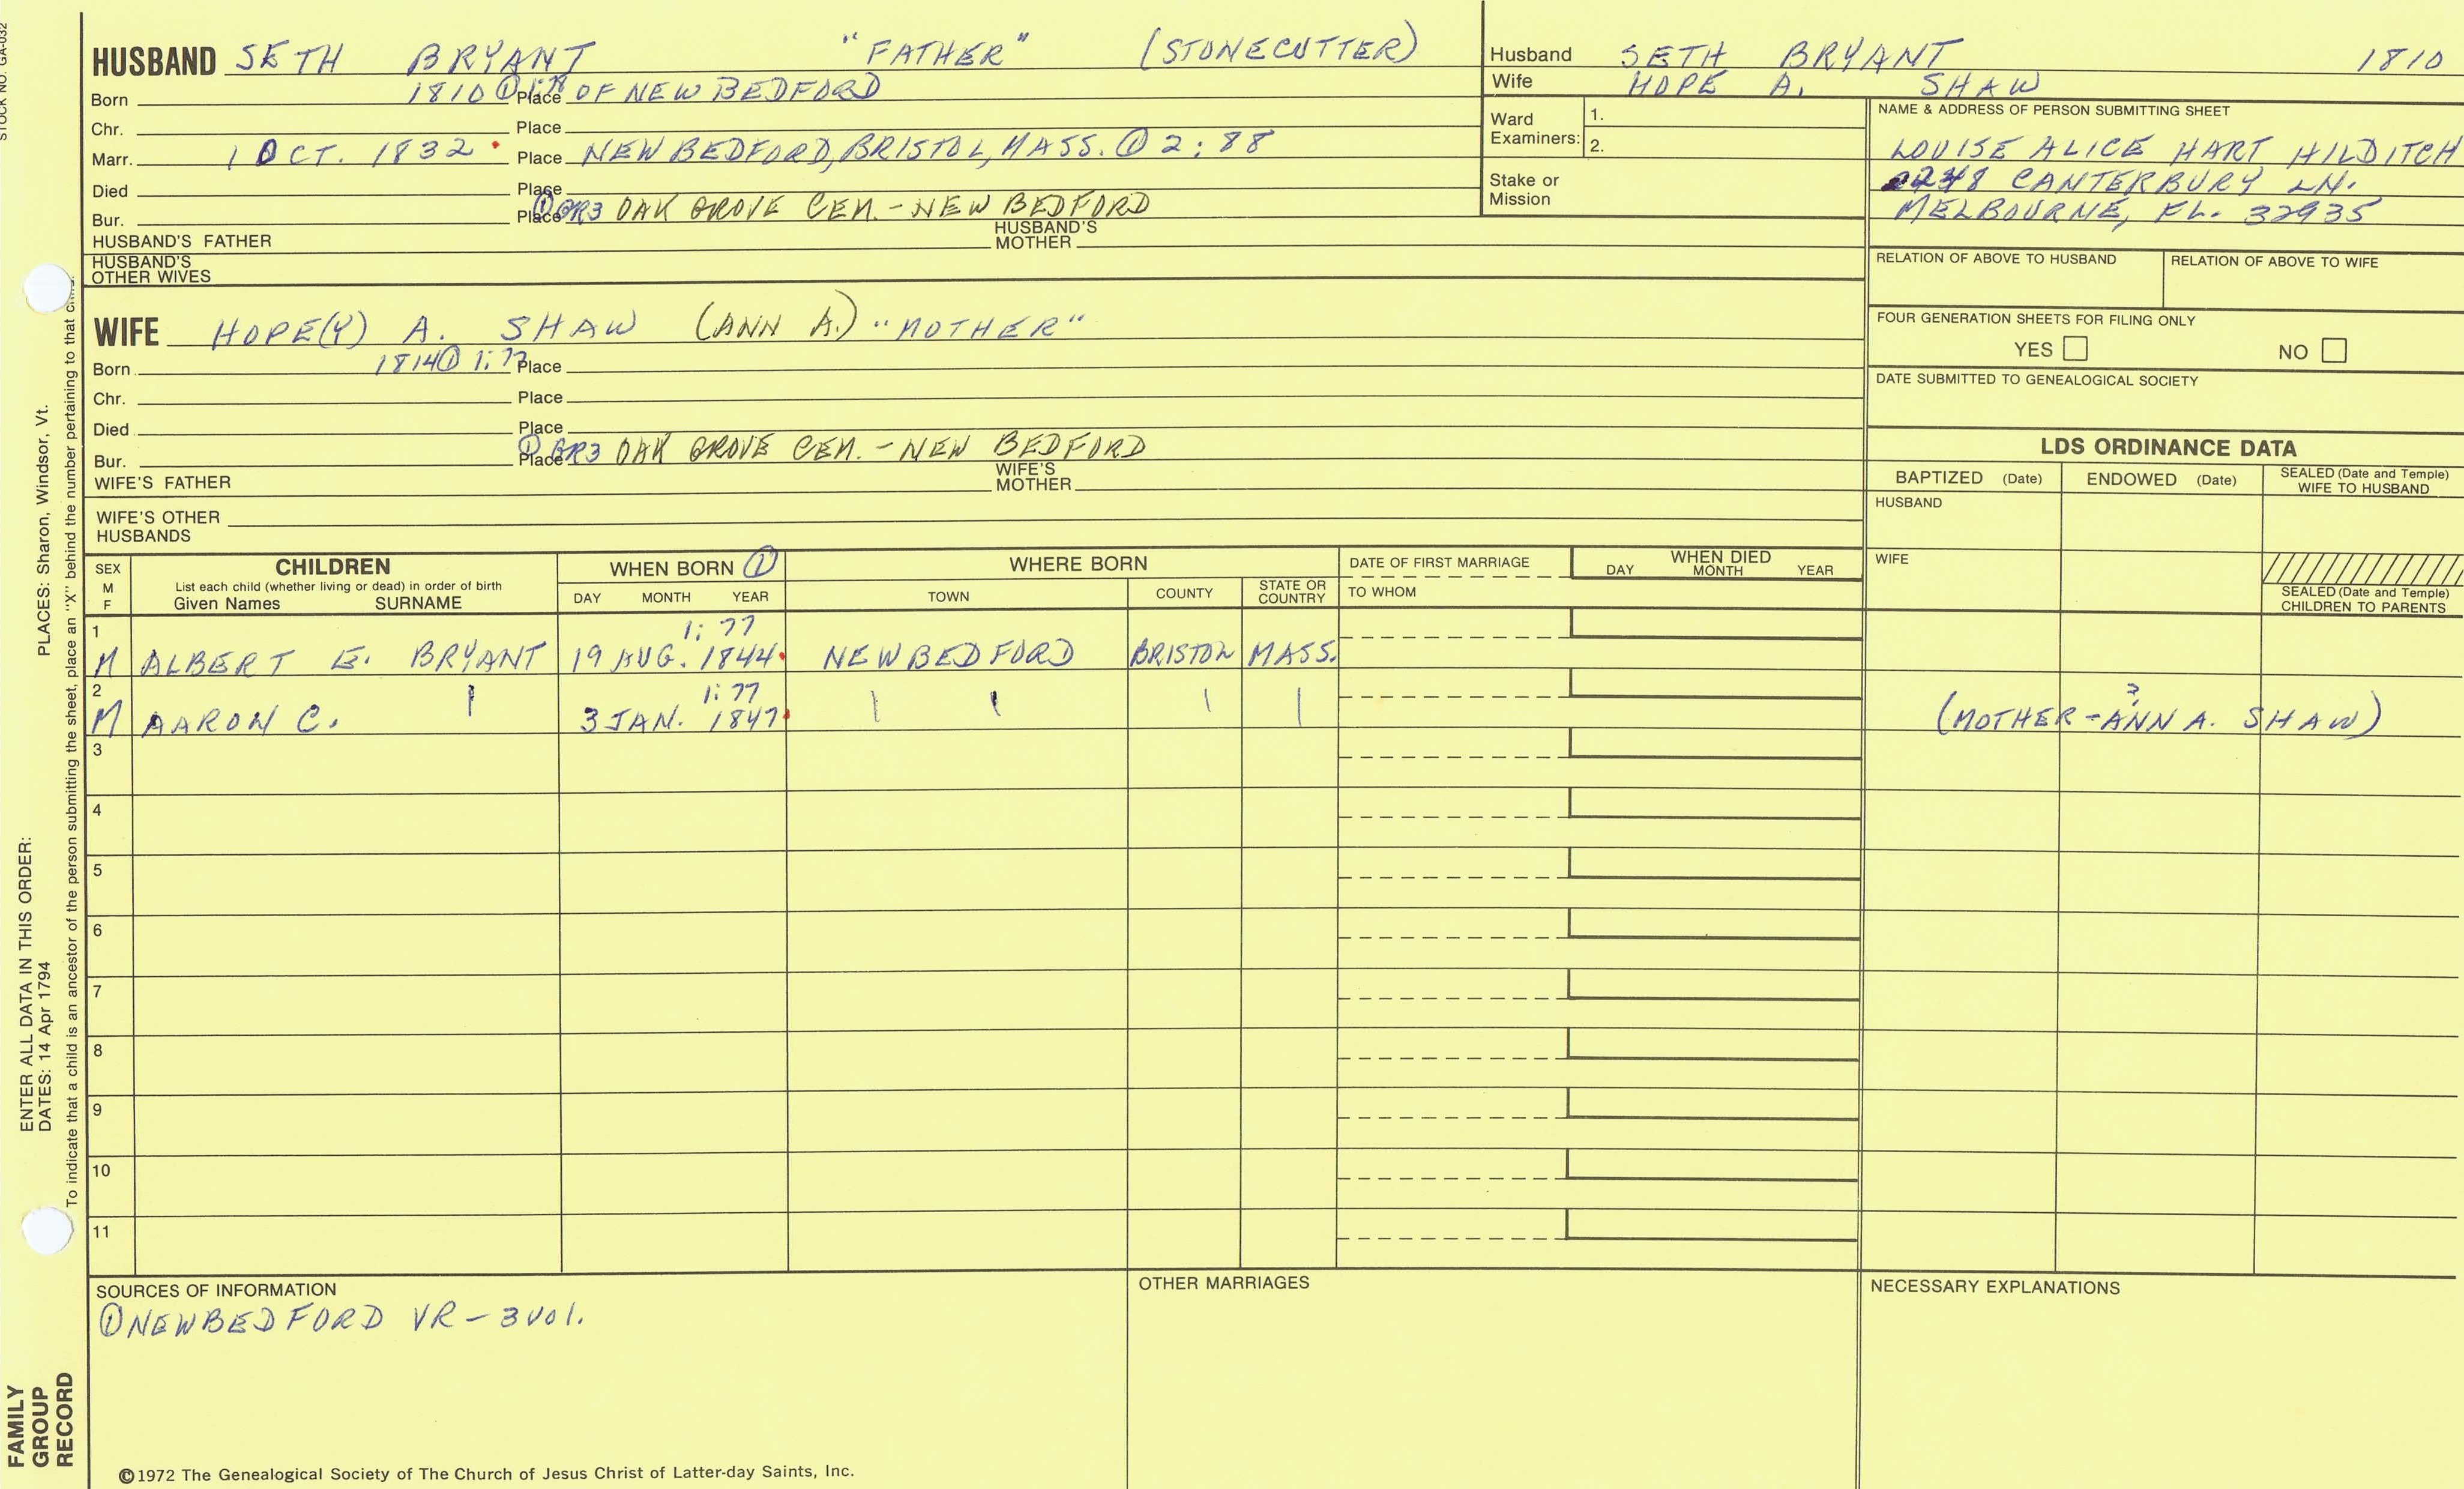 STOCK NO. GA-032
HUSBAND SETH BRYANT "FATHER" (STONECUTTER)
Born 1810 ① Place OF NEW BEDFORD
Chr. Place
Marr. 1 OCT. 1832 Place NEW BEDFORD, BRISTOL, MASS. ① 2:88
Died Place
Bur. Place ① GR3 OAK GROVE CEM. - NEW BEDFORD
HUSBAND'S FATHER HUSBAND'S MOTHER
HUSBAND'S OTHER WIVES
WIFE HOPE(Y) A. SHAW (ANN A.) "MOTHER"
Born 1814 ① 1:77 Place
Chr. Place
Died Place
Bur. Place ① GR3 OAK GROVE CEM. - NEW BEDFORD
WIFE'S FATHER WIFE'S MOTHER
WIFE'S OTHER HUSBANDS
Husband SETH BRYANT 1810
Wife HOPE A. SHAW
Ward Examiners: 1.
2.
Stake or Mission
NAME & ADDRESS OF PERSON SUBMITTING SHEET
LOUISE ALICE HART HILDITCH
CANTERBURY LN.
MELBOURNE, FL. 32935
RELATION OF ABOVE TO HUSBAND RELATION OF ABOVE TO WIFE
FOUR GENERATION SHEETS FOR FILING ONLY
YES NO
DATE SUBMITTED TO GENEALOGICAL SOCIETY
LDS ORDINANCE DATA
BAPTIZED (Date) ENDOWED (Date) SEALED (Date and Temple) WIFE TO HUSBAND
HUSBAND
WIFE
SEALED (Date and Temple) CHILDREN TO PARENTS
SEX M F
CHILDREN
List each child (whether living or dead) in order of birth
Given Names SURNAME
WHEN BORN ①
DAY MONTH YEAR
WHERE BORN
TOWN COUNTY STATE OR COUNTRY
DATE OF FIRST MARRIAGE
TO WHOM
WHEN DIED
DAY MONTH YEAR
1 1:77
M ALBERT E. BRYANT 19 AUG. 1844 NEW BEDFORD BRISTOL MASS.
2 1:77
M AARON C. 3 JAN. 1847 (MOTHER - ANN A. SHAW) ?
3
4
5
6
7
8
9
10
11
SOURCES OF INFORMATION
① NEW BEDFORD VR - 3 Vol.
OTHER MARRIAGES
NECESSARY EXPLANATIONS
©1972 The Genealogical Society of The Church of Jesus Christ of Latter-day Saints, Inc.
FAMILY GROUP RECORD
ENTER ALL DATA IN THIS ORDER:
DATES: 14 Apr 1794
PLACES: Sharon, Windsor, Vt.
To indicate that a child is an ancestor of the person submitting the sheet, place an "X" behind the number pertaining to that